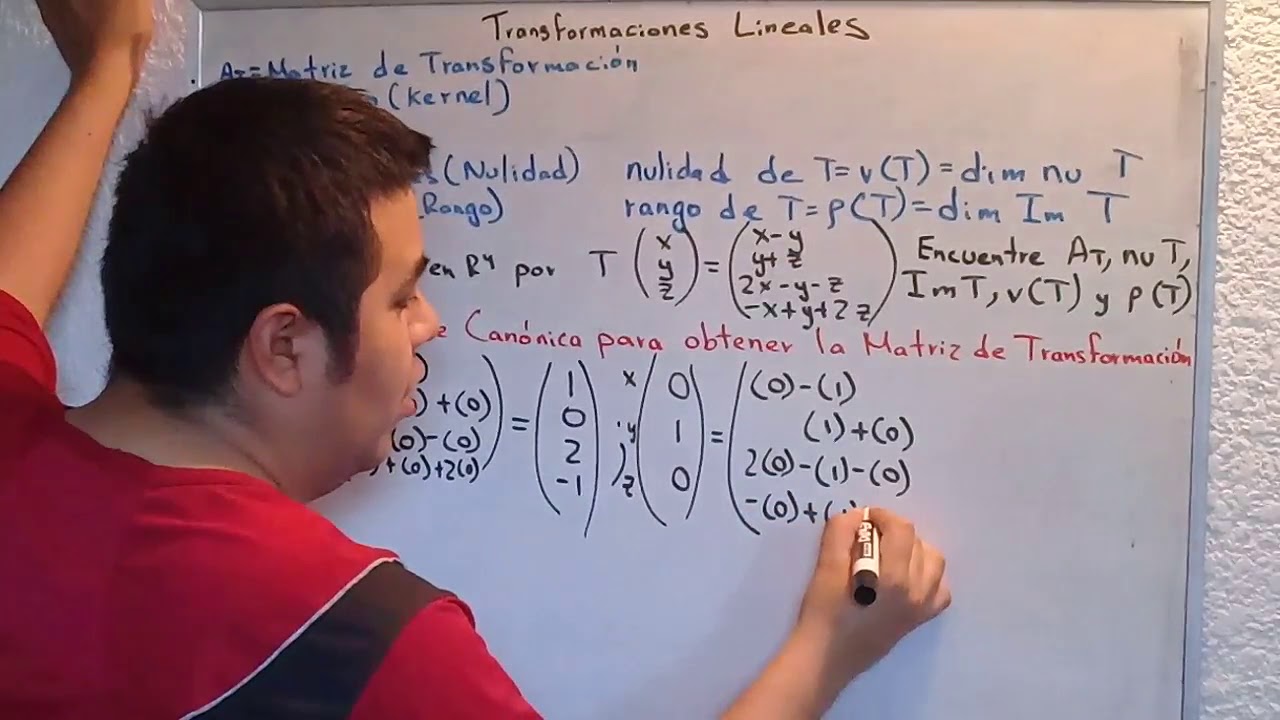 Transformaciones Lineales
AT=Matriz de Transformación
(Kernel)
(Nulidad) nulidad de T=v(T)=dim nu T
Rango) rango de T=ρ(T)=dim Im T
en R4 por T (x y z) = (x-y y+z 2x-y-z -x+y+2z) Encuentre AT, nu T,
ImT, v(T) y ρ(T)
Canónica para obtener la Matriz de Transformación
) x (0)-(1)
)+(0) = (1 0 2 -1) , y (0 1 0) = (1)+(0)
(0)-(0) 2(0)-(1)-(0)
+(0)+2(0) z -(0)+(